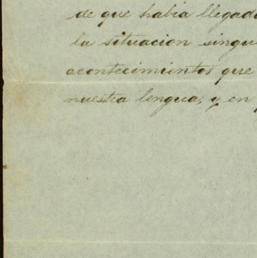 de que habia llegado
la situacion singu
acontecimientos que
nuestra lengua, y en